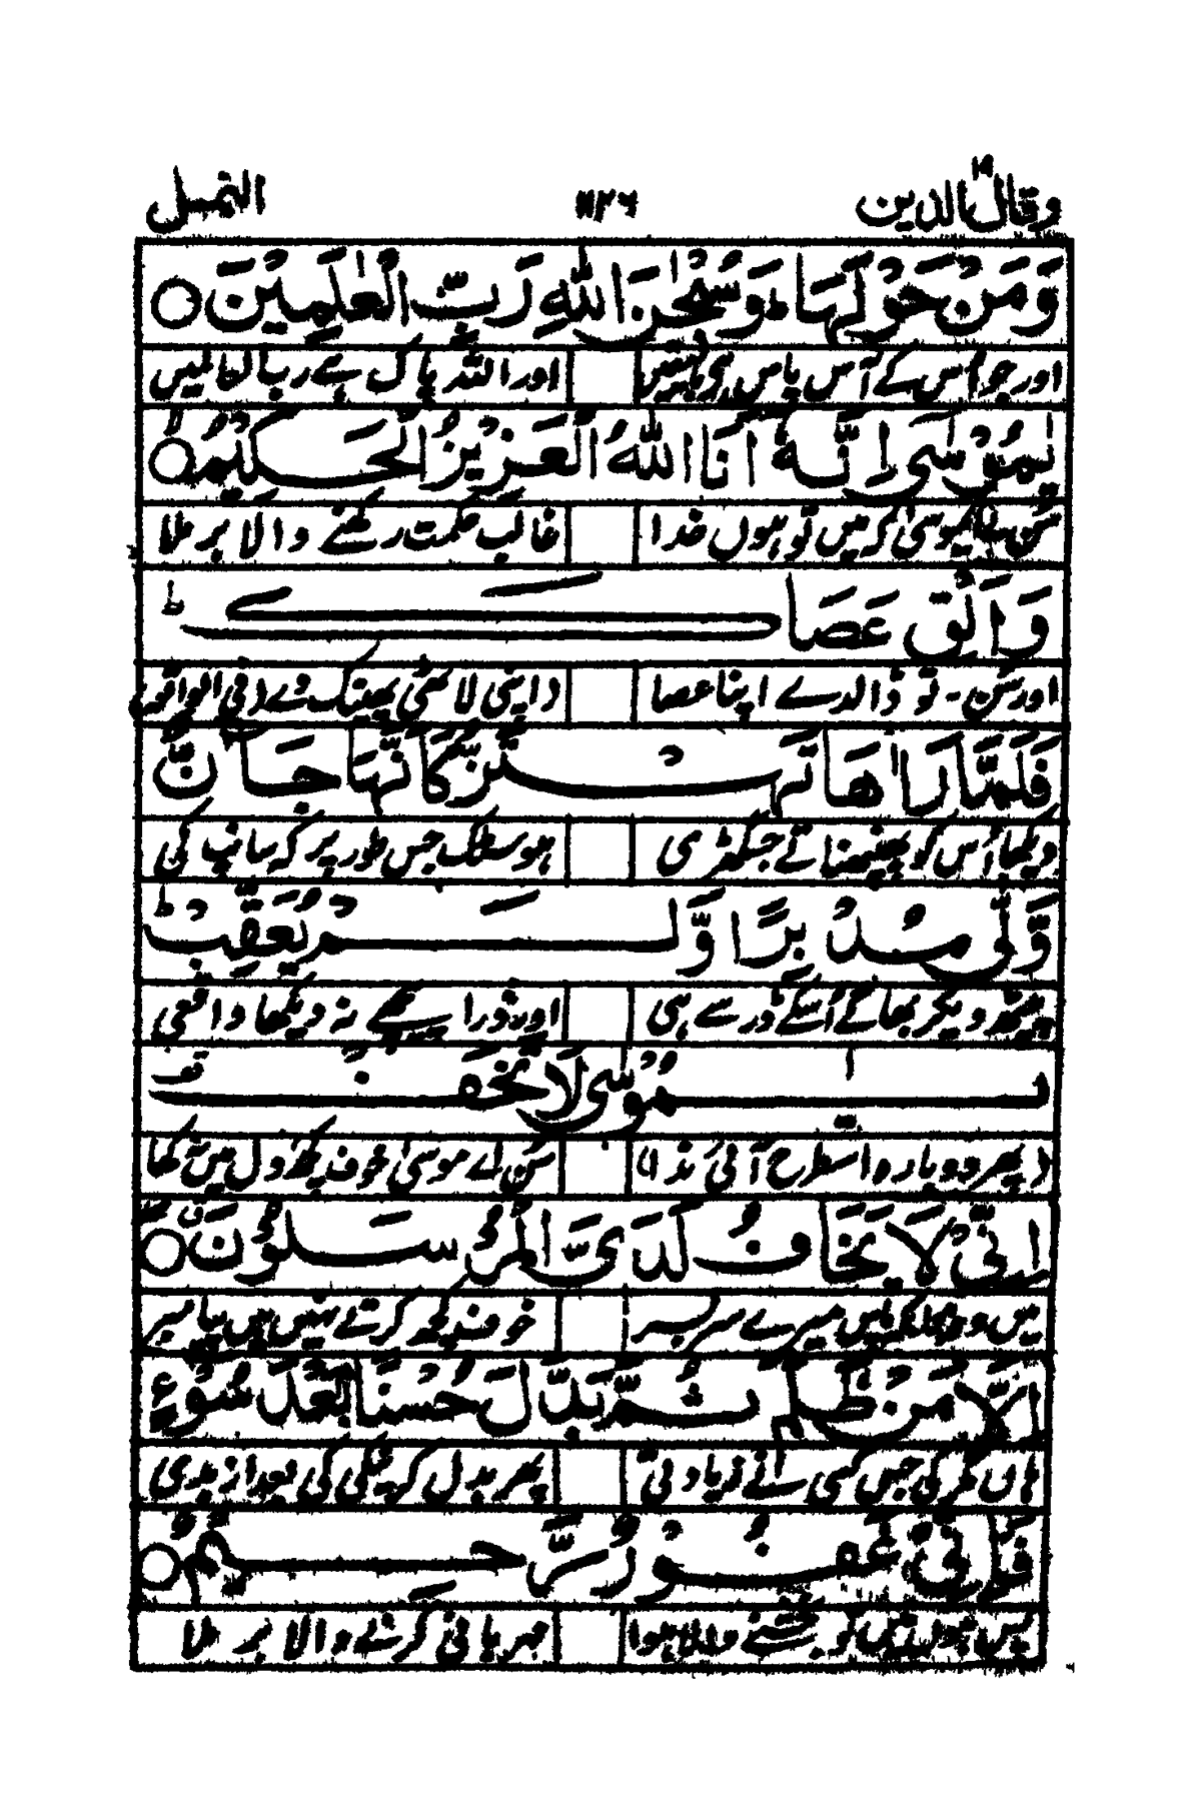 وقال الذین ۱۹ ۱۱۲۶ النمل
وَمَنْ حَوْلَهَا ؕ وَسُبْحٰنَ اللّٰهِ رَبِّ الْعٰلَمِیْنَ ○
اور جو اس کے آس پاس اور اللہ پاک ہے رب العالمیں
یٰمُوْسٰۤی اِنَّهٗۤ اَنَا اللّٰهُ الْعَزِیْزُ الْحَكِیْمُ ○ۙ
موسیٰ کہ میں تو ہوں خدا غالب حکمت رکھنے والا برملا
وَاَلْقِ عَصَاكَ ؕ
اور سُن - تو ڈالدے اپنا عصا (اپنی لاٹھی پھینک دے (فی الواقع)
فَلَمَّا رَاٰهَا تَهْتَزُّ كَاَنَّهَا جَآنٌّ
دیکھا اُس کو پھنپھناتے جس گھڑی ہو سٹک جس طور پر کہ سانپ کی
وَّلّٰی مُدْبِرًا وَّلَمْ یُعَقِّبْ ؕ
پیٹھ دیکر بھاگے اُسکے ڈر سے ہی اور ذرا پیچھے نہ دیکھا واقعی
یٰمُوْسٰی لَا تَخَفْ قف
(پھر دوبارہ اسطرح آئی ندا) سُن اے موسیٰ خوف دل میں کھا
اِنِّیْ لَا یَخَافُ لَدَیَّ الْمُرْسَلُوْنَ ○
میں میرے سربسر خوف کچھ کرتے نہیں ہیں پیامبر
اِلَّا مَنْ ظَلَمَ ثُمَّ بَدَّلَ حُسْنًۢا بَعْدَ سُوْٓءٍ
ہاں مگر کی جس کسی نے زیادتی پھر بدل کر نیکی کی بعد از بدی
فَاِنِّیْ غَفُوْرٌ رَّحِیْمٌ ○
والا ہوا مہربانی کرنے والا برملا